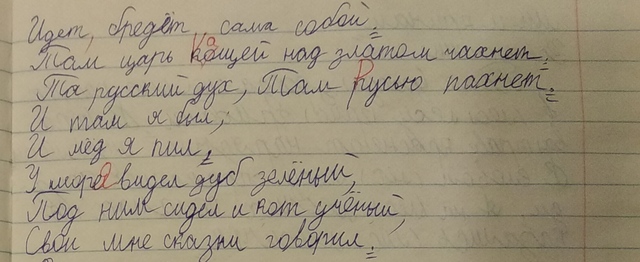 Идет, бредёт, сама собой.
Там царь Кащей над златом чахнет.
Та русский дух, Там Русью пахнет.
И там я был,
И мёд я пил.
У моря видел дуб зелёный,
Под ним сидел и кот учёный,
Свои мне сказки говорил.